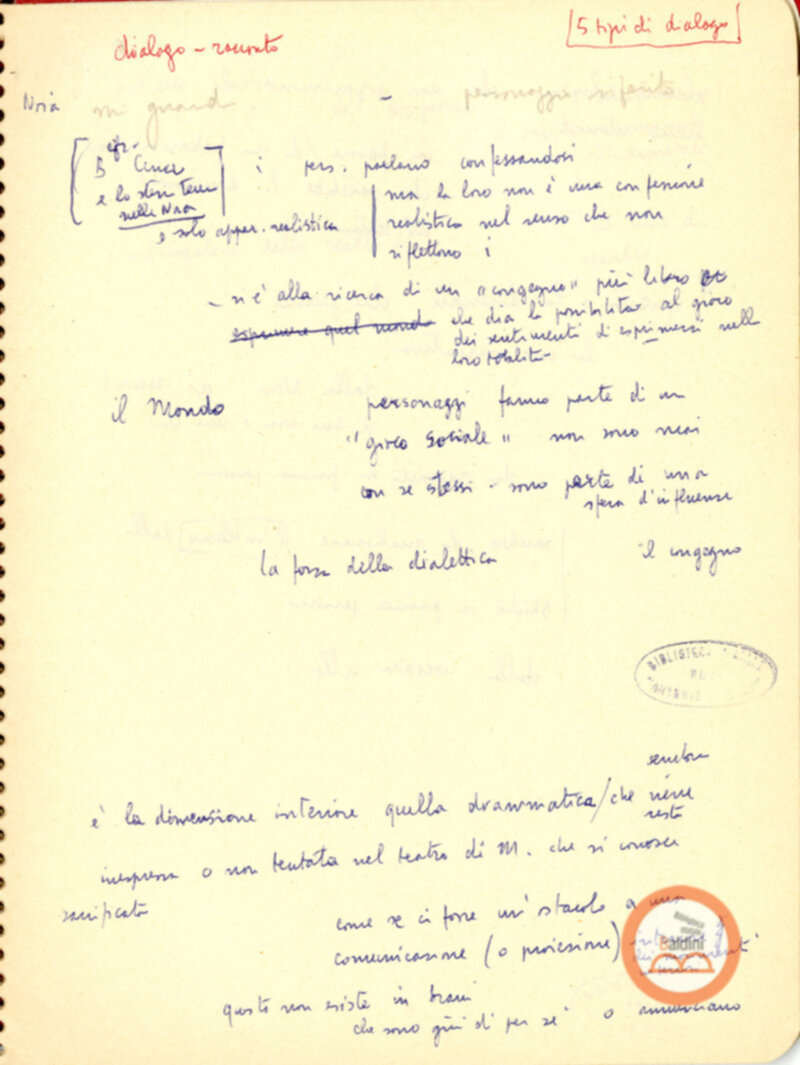 [5 tipi di dialogo]
dialogo - racconto
mi guard - personaggi riferito
B Cenci
e lo stesso
nella Noia
e solo appar. realistica
i pers. parlano confessandosi
ma la loro non è una confessione
realistica nel senso che non
riflettono i
- si è alla ricerca di un "congegno" più libero
esprimere quel mondo che dia la possibilità al gioco
dei sentimenti di esprimersi nella
loro
il Mondo personaggi fanno parte di un
"gioco sociale" non sono mai
con se stessi - sono parte di una
sfera d'influenze
la forza della dialettica il congegno
BIBLIOTECA
sembra
è la dimensione interiore quella drammatica / che viene
resta
inespressa o non tentata nel teatro di M. che si conosce
sacrificata
come se ci fosse un'stacolo a una
comunicazione (o proiezione)
questo non esiste in brani
che sono già di per sé o annunciano
Baldini